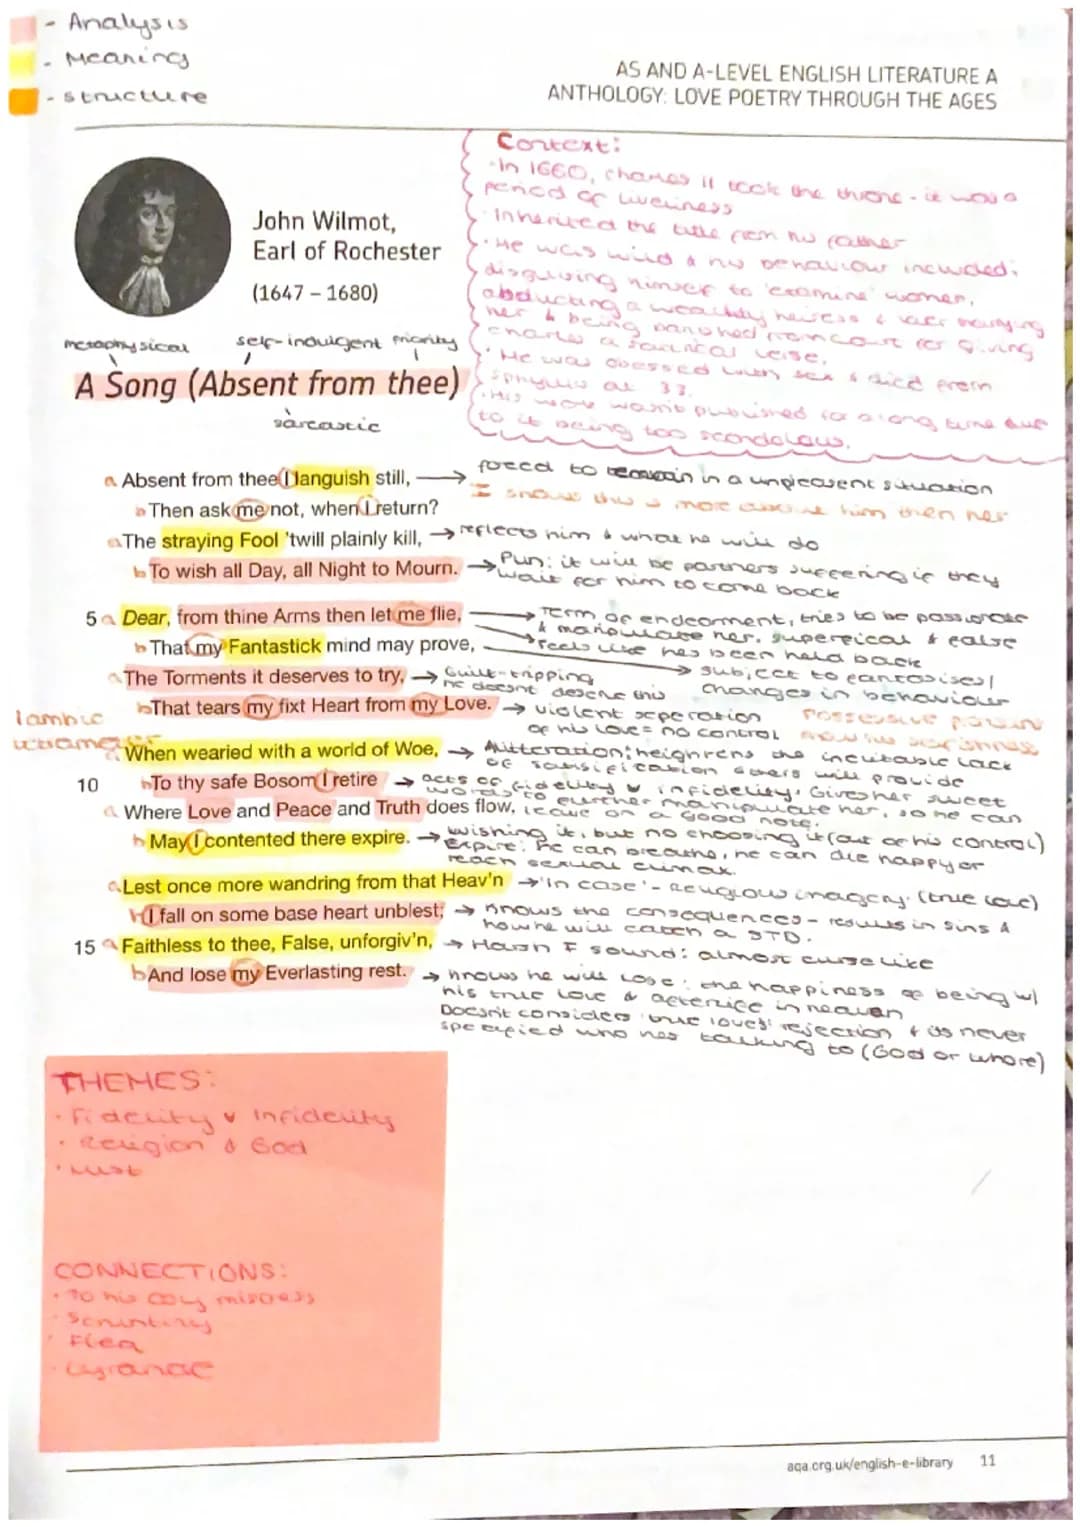 - Analysis
- Meaning
- structure
AS AND A-LEVEL ENGLISH LITERATURE A
ANTHOLOGY: LOVE POETRY THROUGH THE AGES
John Wilmot,
Earl of Rochester
(1647 – 1680)
Context:
·In 1660, Charles II took the throne - it was a
period of liveliness
·Inherited the title from his father
·He was wild & his behaviour included:
disguising himself to 'examine' women,
abducting a wealthy heiress & later marrying
her & being banished from court for giving
Charles a satirical verse.
·He was obessed with sex & died from
sphyllis at 33.
·His work wasn't published for a long time due
to it being too scandolous.
metaphysical
self-indulgent priority
A Song (Absent from thee)
sarcastic
a Absent from thee I languish still, → forced to remain in a unpleasent situation
I shows this is more about him then her
b Then ask me not, when I return?
a The straying Fool 'twill plainly kill, → reflects him & what he will do
b To wish all Day, all Night to Mourn. → Pun: it will be partners suffering if they
wait for him to come back
5 a Dear, from thine Arms then let me flie, → Term of endearment, tries to be passionate
& manipulate her, superficial & false
b That my Fantastick mind may prove, → feels like he's been held back
→ subject to fantasises/
changes in behaviour
a The Torments it deserves to try, → Guilt-tripping
he doesnt deserve this
b That tears my fixt Heart from my Love. → violent seperation
of his love = no control
Possessive pronoun
Iambic
tetrameter
a When wearied with a world of Woe, → Alitteration: heightens the inevitable lack
of satisfication others will provide
10 b To thy safe Bosom I retire → acts of fidelity v infidelity. Gives her sweet
words to further manipulate her, so he can
leave on a good note.
a Where Love and Peace and Truth does flow,
b May I contented there expire. → wishing it, but no choosing it (out of his control)
Expire: he can breathe, he can die happy or
reach sexual climax.
a Lest once more wandring from that Heav'n → 'In case' - Religious imagery. (true love)
b I fall on some base heart unblest; → knows the consequences - results in sins &
how he will catch a STD.
15 a Faithless to thee, False, unforgiv'n, → Harsh F sound: almost curse like
b And lose my Everlasting rest. → knows he will lose: the happiness of being w/
his true love & afterlife in heaven
Doesn't consider 'true loves' rejection & its never
specified who hes talking to (God or whore)
THEMES:
· Fidelity v Infidelity
· Religion & God
· Lust
CONNECTIONS:
· To his coy misress
· Scrutiny
· Flea
· Cynarae
aqa.org.uk/english-e-library 11